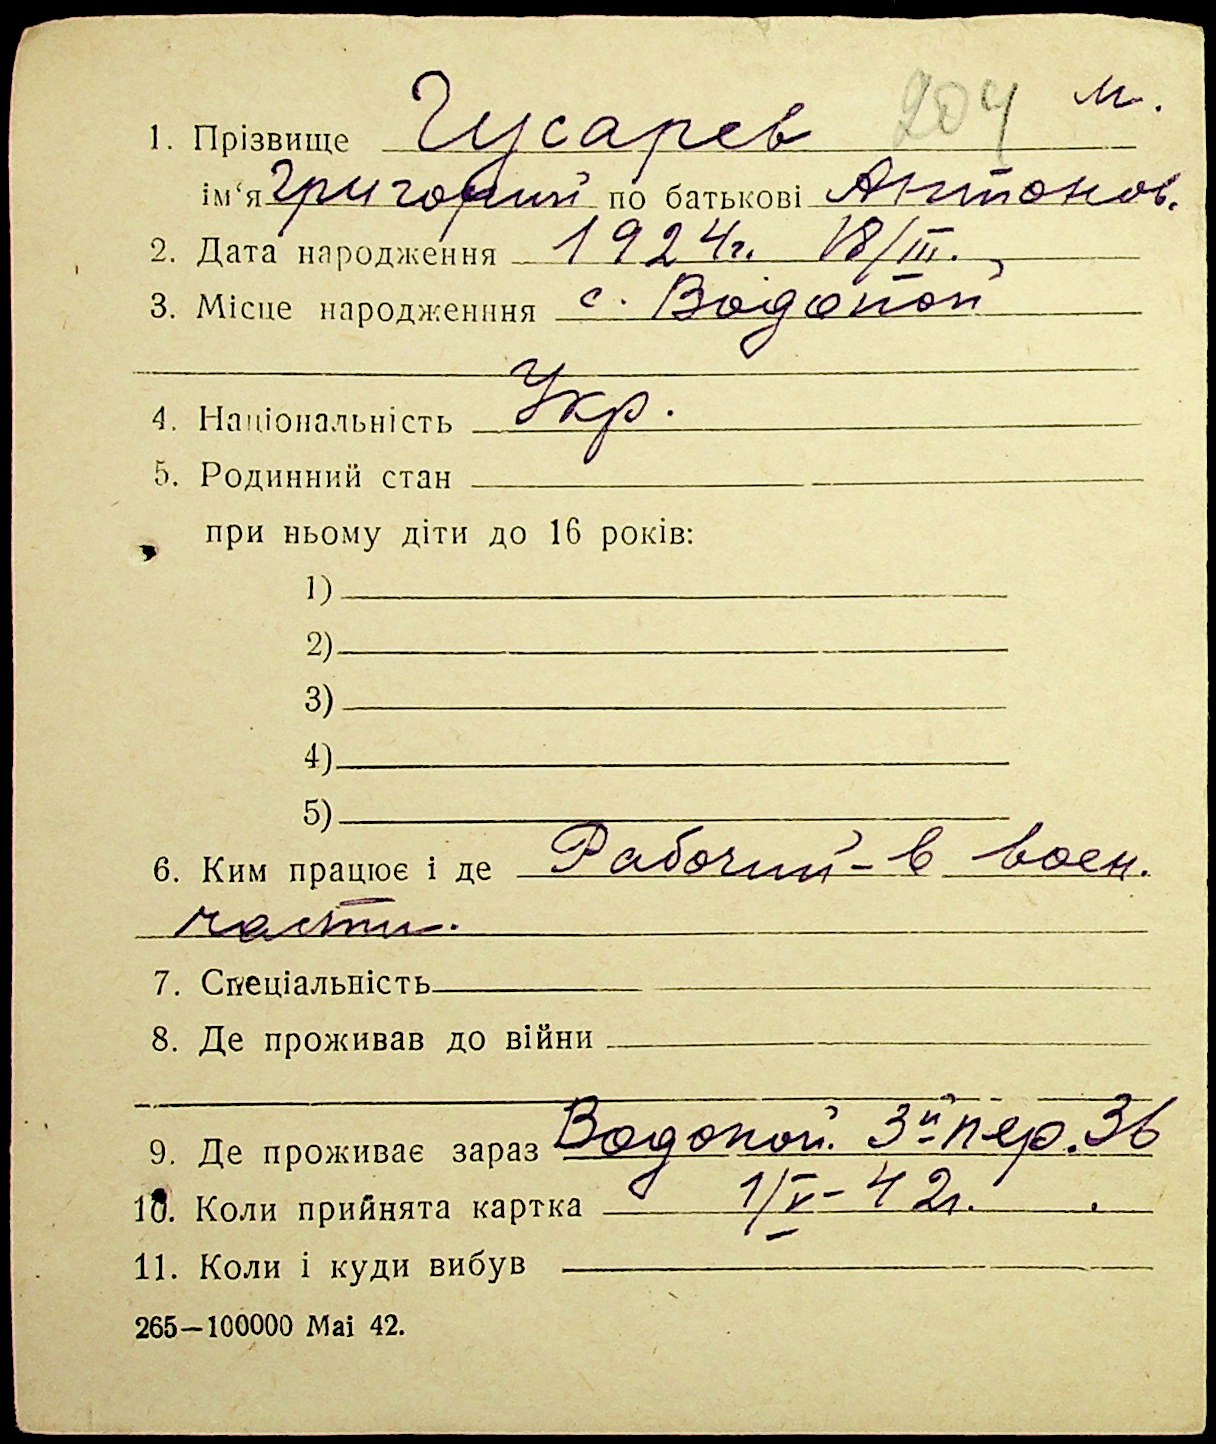 204 м.
1. Прізвище Гусарев
ім'я Григорий по батькові Антонов.
2. Дата народження 1924г. 18/III.
3. Місце народженння с. Водопой
4. Національність Укр.
5. Родинний стан
при ньому діти до 16 років:
1)
2)
3)
4)
5)
6. Ким працює і де Рабочий - в воен.
части.
7. Спеціальність
8. Де проживав до війни
9. Де проживає зараз Водопой. 3й пер. 36
10. Коли прийнята картка 1/V - 42г.
11. Коли і куди вибув
265—100000 Mai 42.